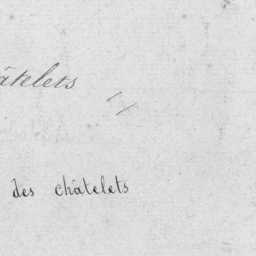 âtelets
des châtelets